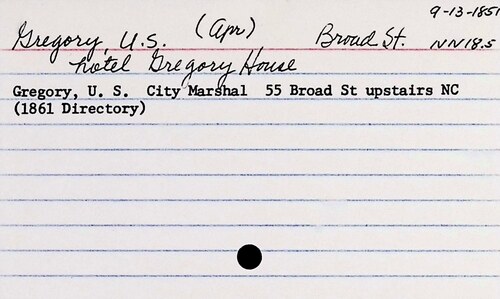 9-13-1851
Gregory, U.S. (Apr) Broad St. NN18.5
hotel Gregory House
Gregory, U. S. City Marshal 55 Broad St upstairs NC
(1861 Directory)